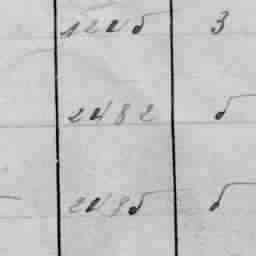 1225 3
2482 5
2485 5